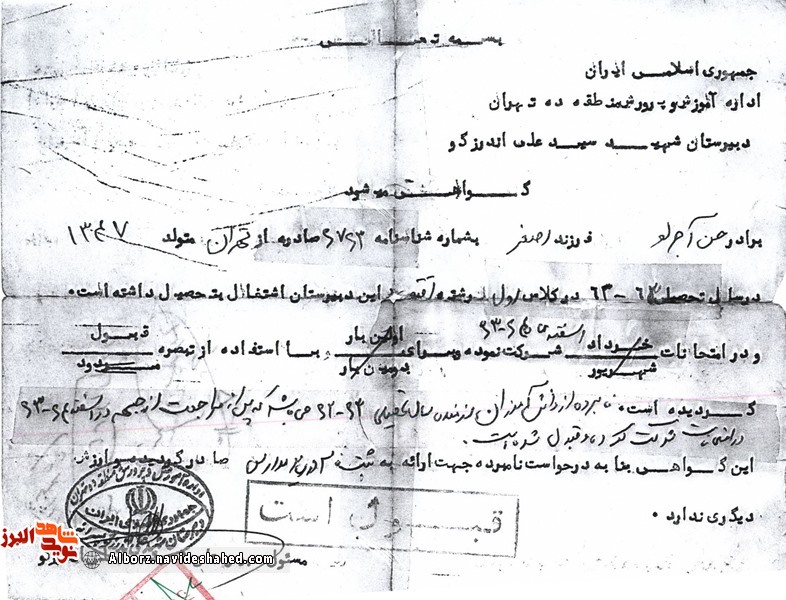 بسمه تعالی
جمهوری اسلامی ایران
اداره آموزش و پرورش منطقه ده تهران
دبیرستان شهید سید علی اندرزگو
گواهی میشود
برادر حسن آجرلو فرزند اصغر بشماره شناسنامه ۶۷۶۳ صادره از تهران متولد ۱۳۴۷
در سال تحصیلی ۶۴ - ۶۳ در کلاس اول رشته این دبیرستان اشتغال بتحصیل داشته است.
و در امتحانات خرداد شهریور اسفند ماه ۶۴-۶۳ شرکت نموده و برای اولین بار دومین بار و با استفاده از تبصره قبول مردود
گردیده است. نامبرده از دانش آموزان رزمنده سال تحصیلی ۶۴-۶۳ می باشد که پس از مراجعت از جبهه در اسفند ۶۴-۶۳
در امتحانات شرکت کرده و قبول شده است.
این گواهی بنا به درخواست نامبرده جهت ارائه به صادر گردید و ارزش
دیگری ندارد.
قبول است
اداره آموزش و پرورش منطقه ده تهران
جمهوری اسلامی ایران
مسئول
شاهد
نوید
البرز
Alborz.navideshahed.com